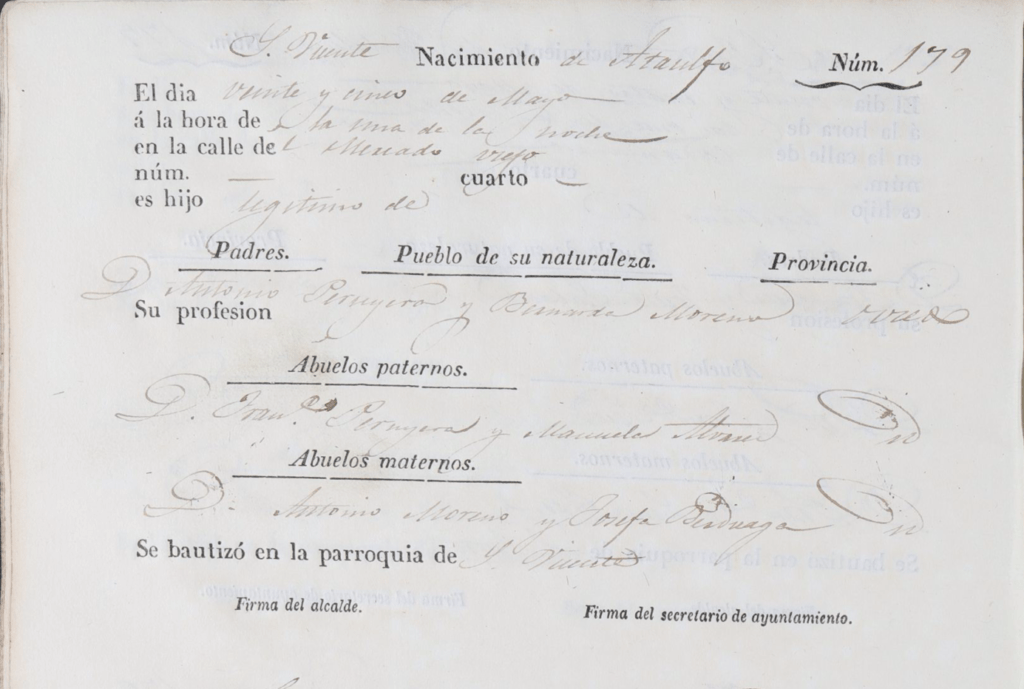 S. Vicente Nacimiento de Ataulfo Núm. 179
El dia veinte y cinco de Mayo
á la hora de a la una de la noche
en la calle del Mercado viejo
núm. — cuarto —
es hijo legitimo de
Padres. Pueblo de su naturaleza. Provincia.
D. Antonio Peruyera y Bernarda Moreno Oviedo
Su profesion
Abuelos paternos.
D. Franco. Peruyera y Manuela Alvarez
Abuelos maternos.
D. Antonio Moreno y Josefa Berduaga
Se bautizó en la parroquia de S. Vicente
Firma del alcalde. Firma del secretario de ayuntamiento.